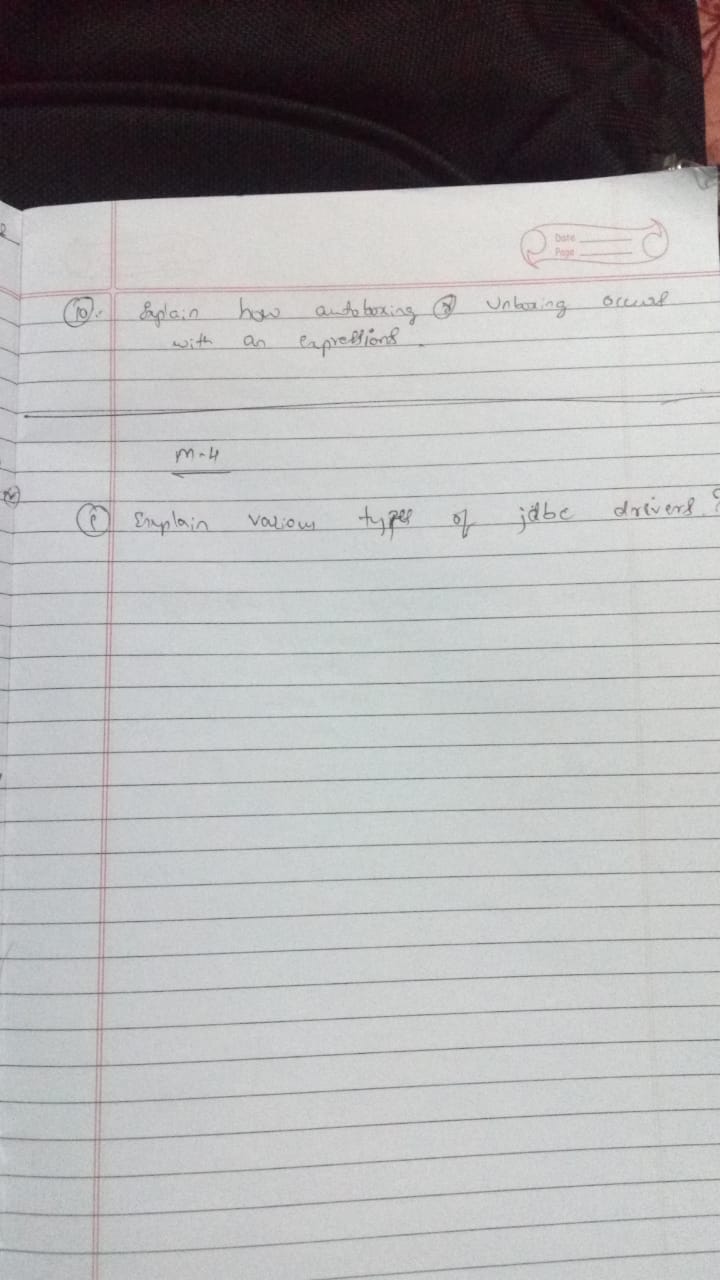 Date
Page
10. Explain how autoboxing & Unboxing occurs
with an expressions.
M-4
1 Explain various types of jdbc drivers?